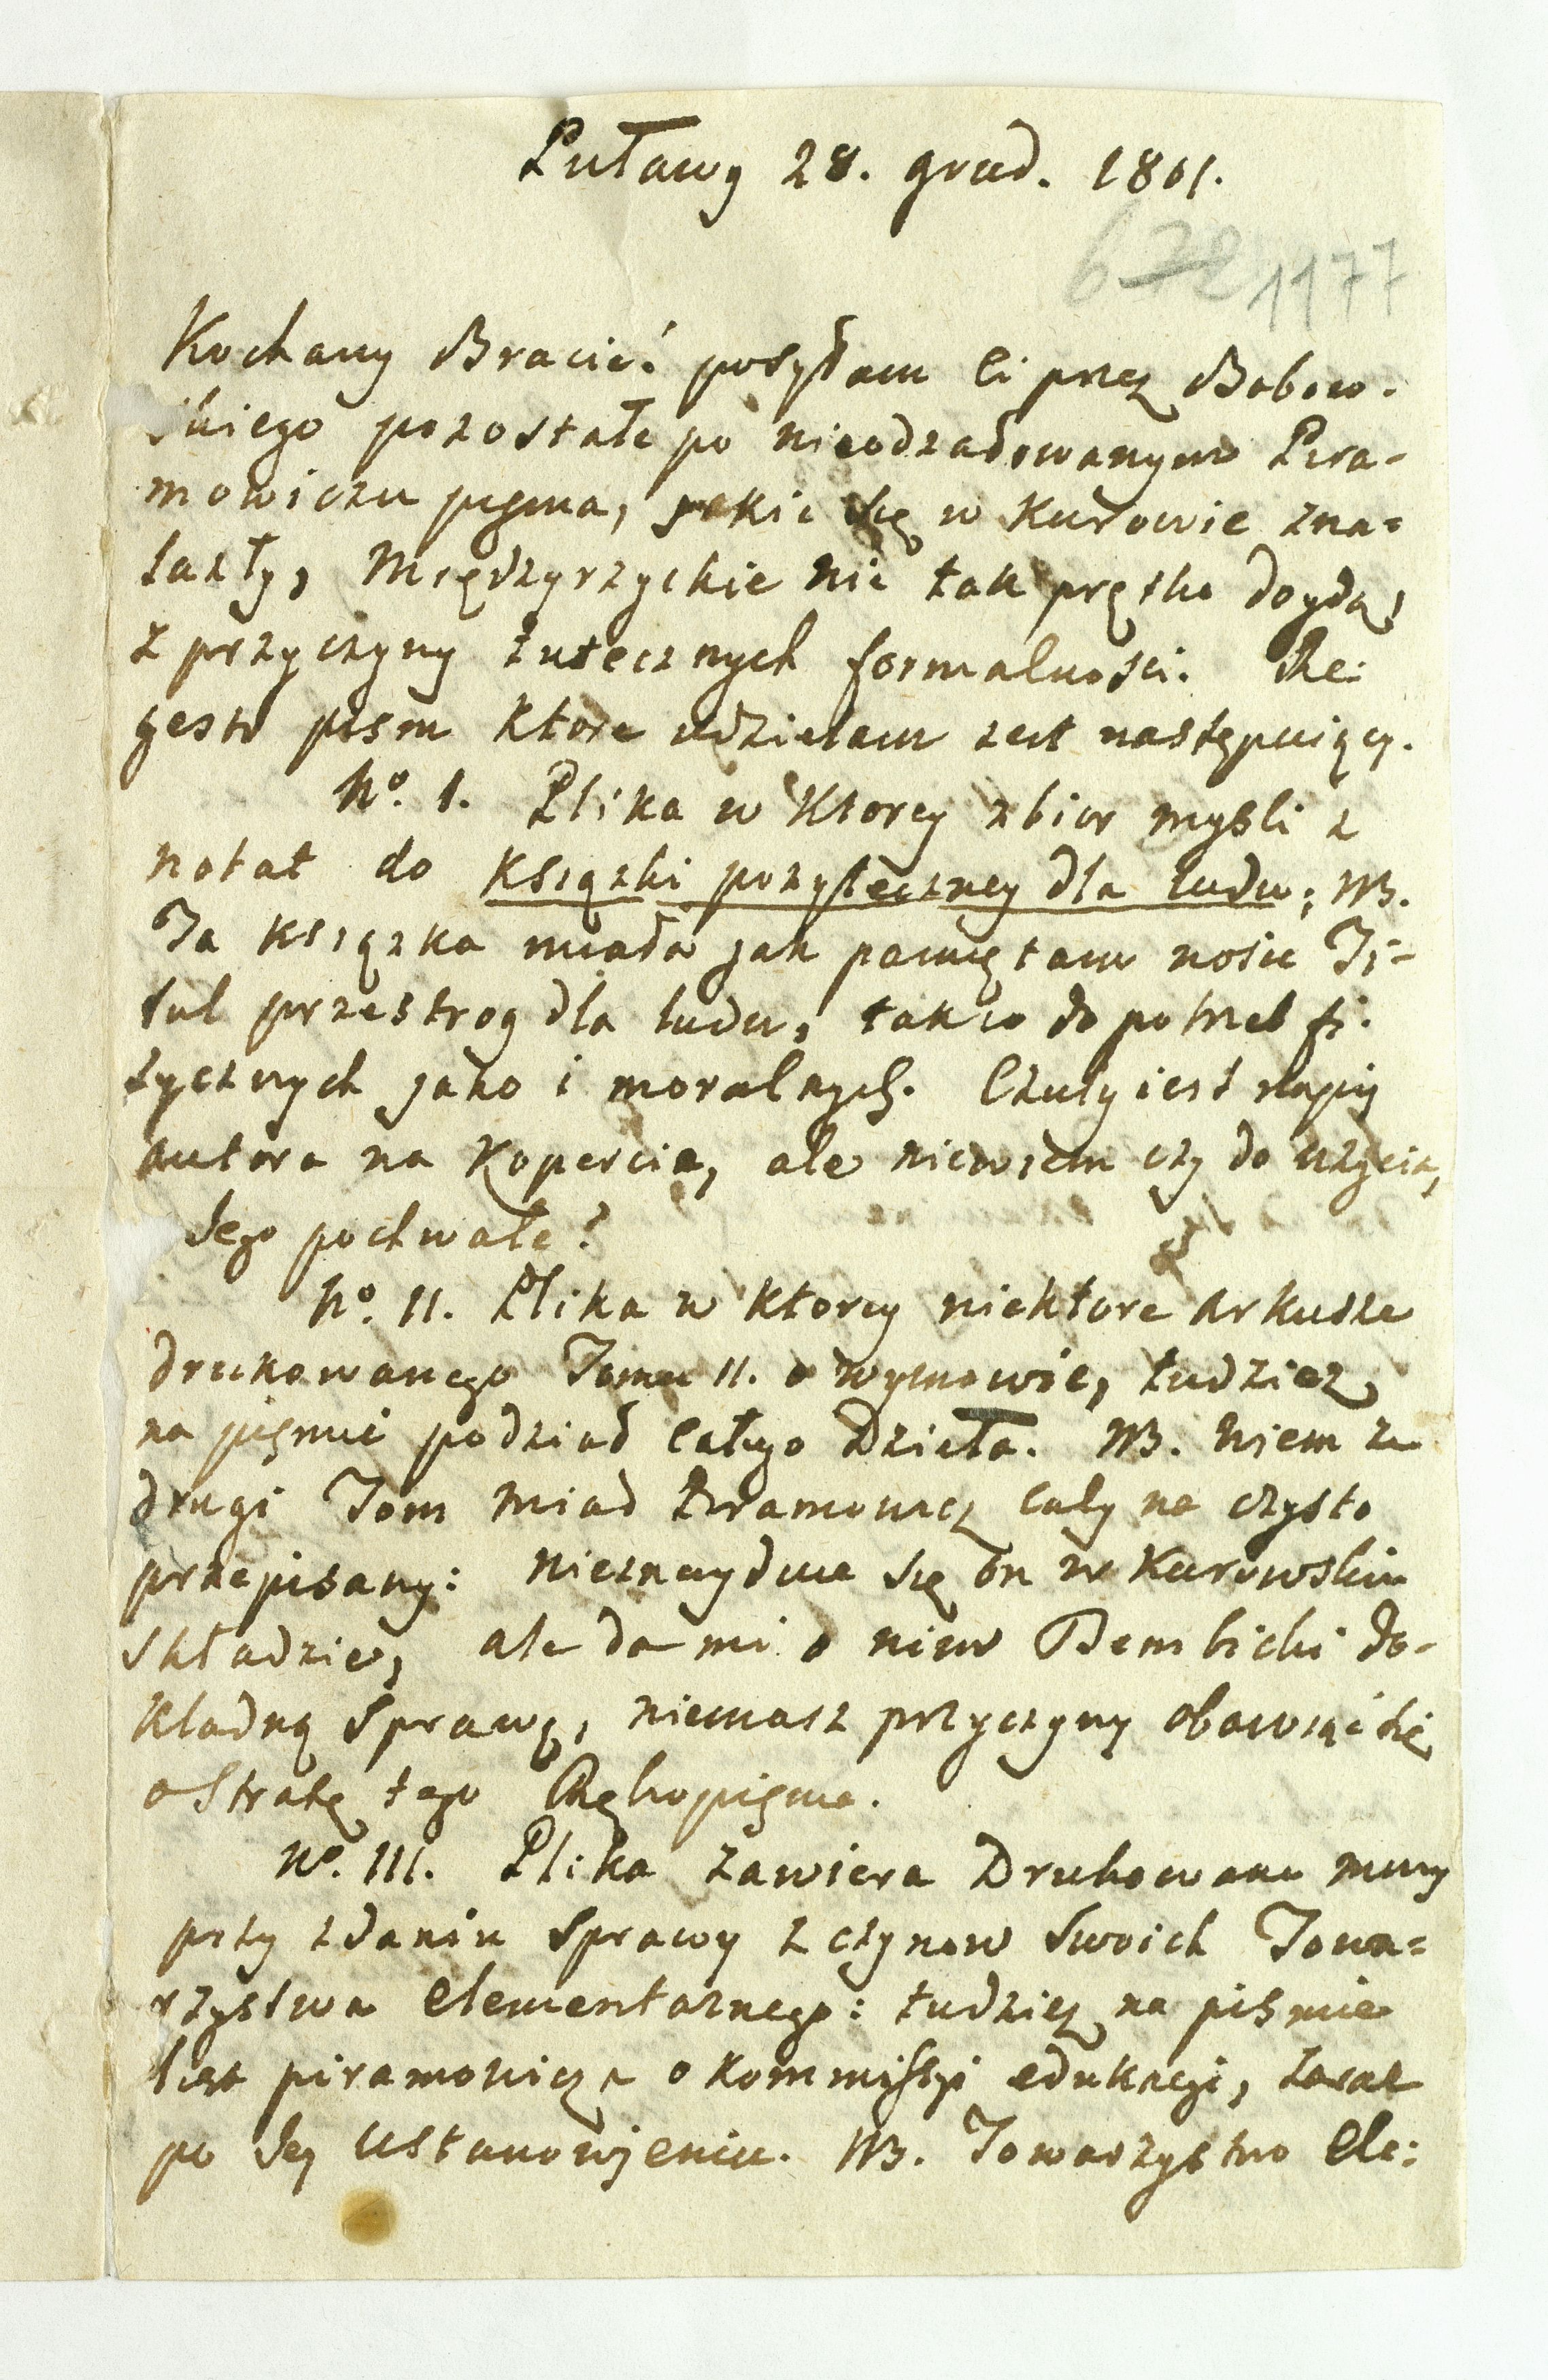 Puławy 28. grud. 1801.
672 1177
Kochany Bracie! posyłam Ci przez Bobow-
skiego pozostałe po nieodżałowanym Pira-
mowiczu pisma, jakie się w Kurowie zna-
lazły, Międzyrzyckie nie tak prętko doydą,
z przyczyny tutecznych formalności. Re-
gestr pism ktore udzielam iest następuiący.
No. I. Plika w ktorey zbior mysli z
notat do ksiązki pozyteczney dla ludu; NB.
Ta ksiązka miała jak pamiętam nosić Ty-
tuł przestrog dla ludu, tak co do potrzeb fi-
zycznych jako i moralnych. Czuły iest napis
autora na kopercie, ale niewiem czy do uzycia,
Jego pochwale?
No. II. Plika w ktorey niektore arkusze
drukowanego Tomu II. o wymowie, tudziez
na piśmie podział całego Dzieła. NB. Wiem ze
drugi Tom miał Piramowicz cały na czysto
przepisany: nieznayduie się on w Kurowskim
składzie, ale da mi o nim Dembicki do-
kładną sprawę, niemasz przyczyny obawiać się
o stratę tego Rękopisma.
No. III. Plika zawiera Drukowane mowy
przy zdaniu sprawy z czynow swoich Towa-
rzystwa elementarnego: tudziez na piśmie
list piramowicza o kommissyi edukacyi, zaraz
po Jey ustanowieniu. NB. Towarzystwo Ele-